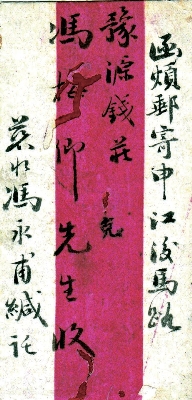 函煩郵寄申江後馬路
豫源錢莊
馮卿先生收
慈馮永甫緘託